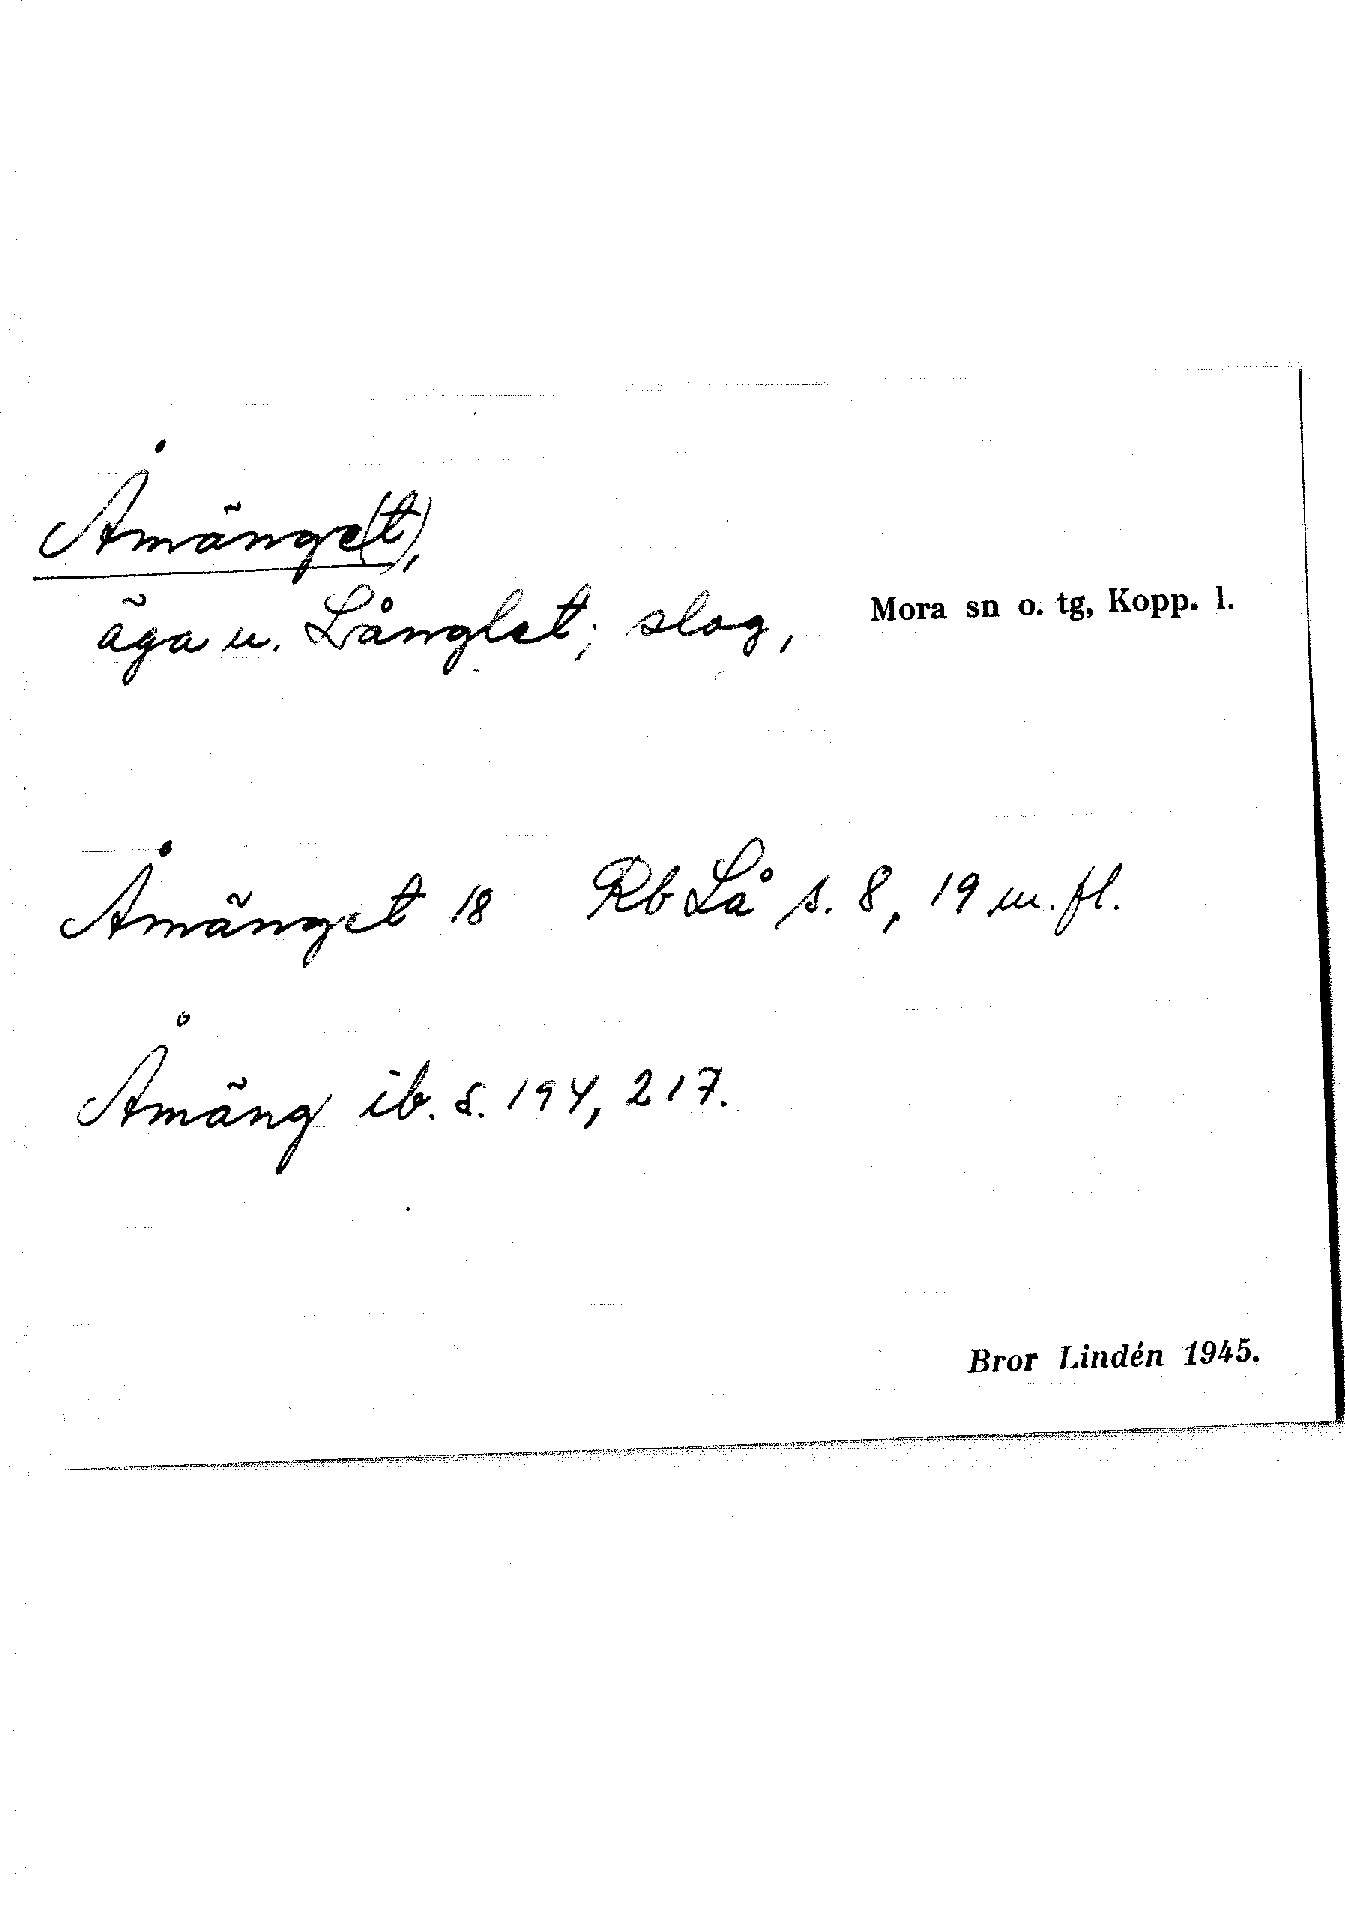 Åmänge(t),
äga u. Långlet; slog,
Mora sn o. tg, Kopp. l.
Åmänget 18 Rb Lå s. 8, 19 m. fl.
Åmäng ib. s. 194, 217.
Bror Lindén 1945.